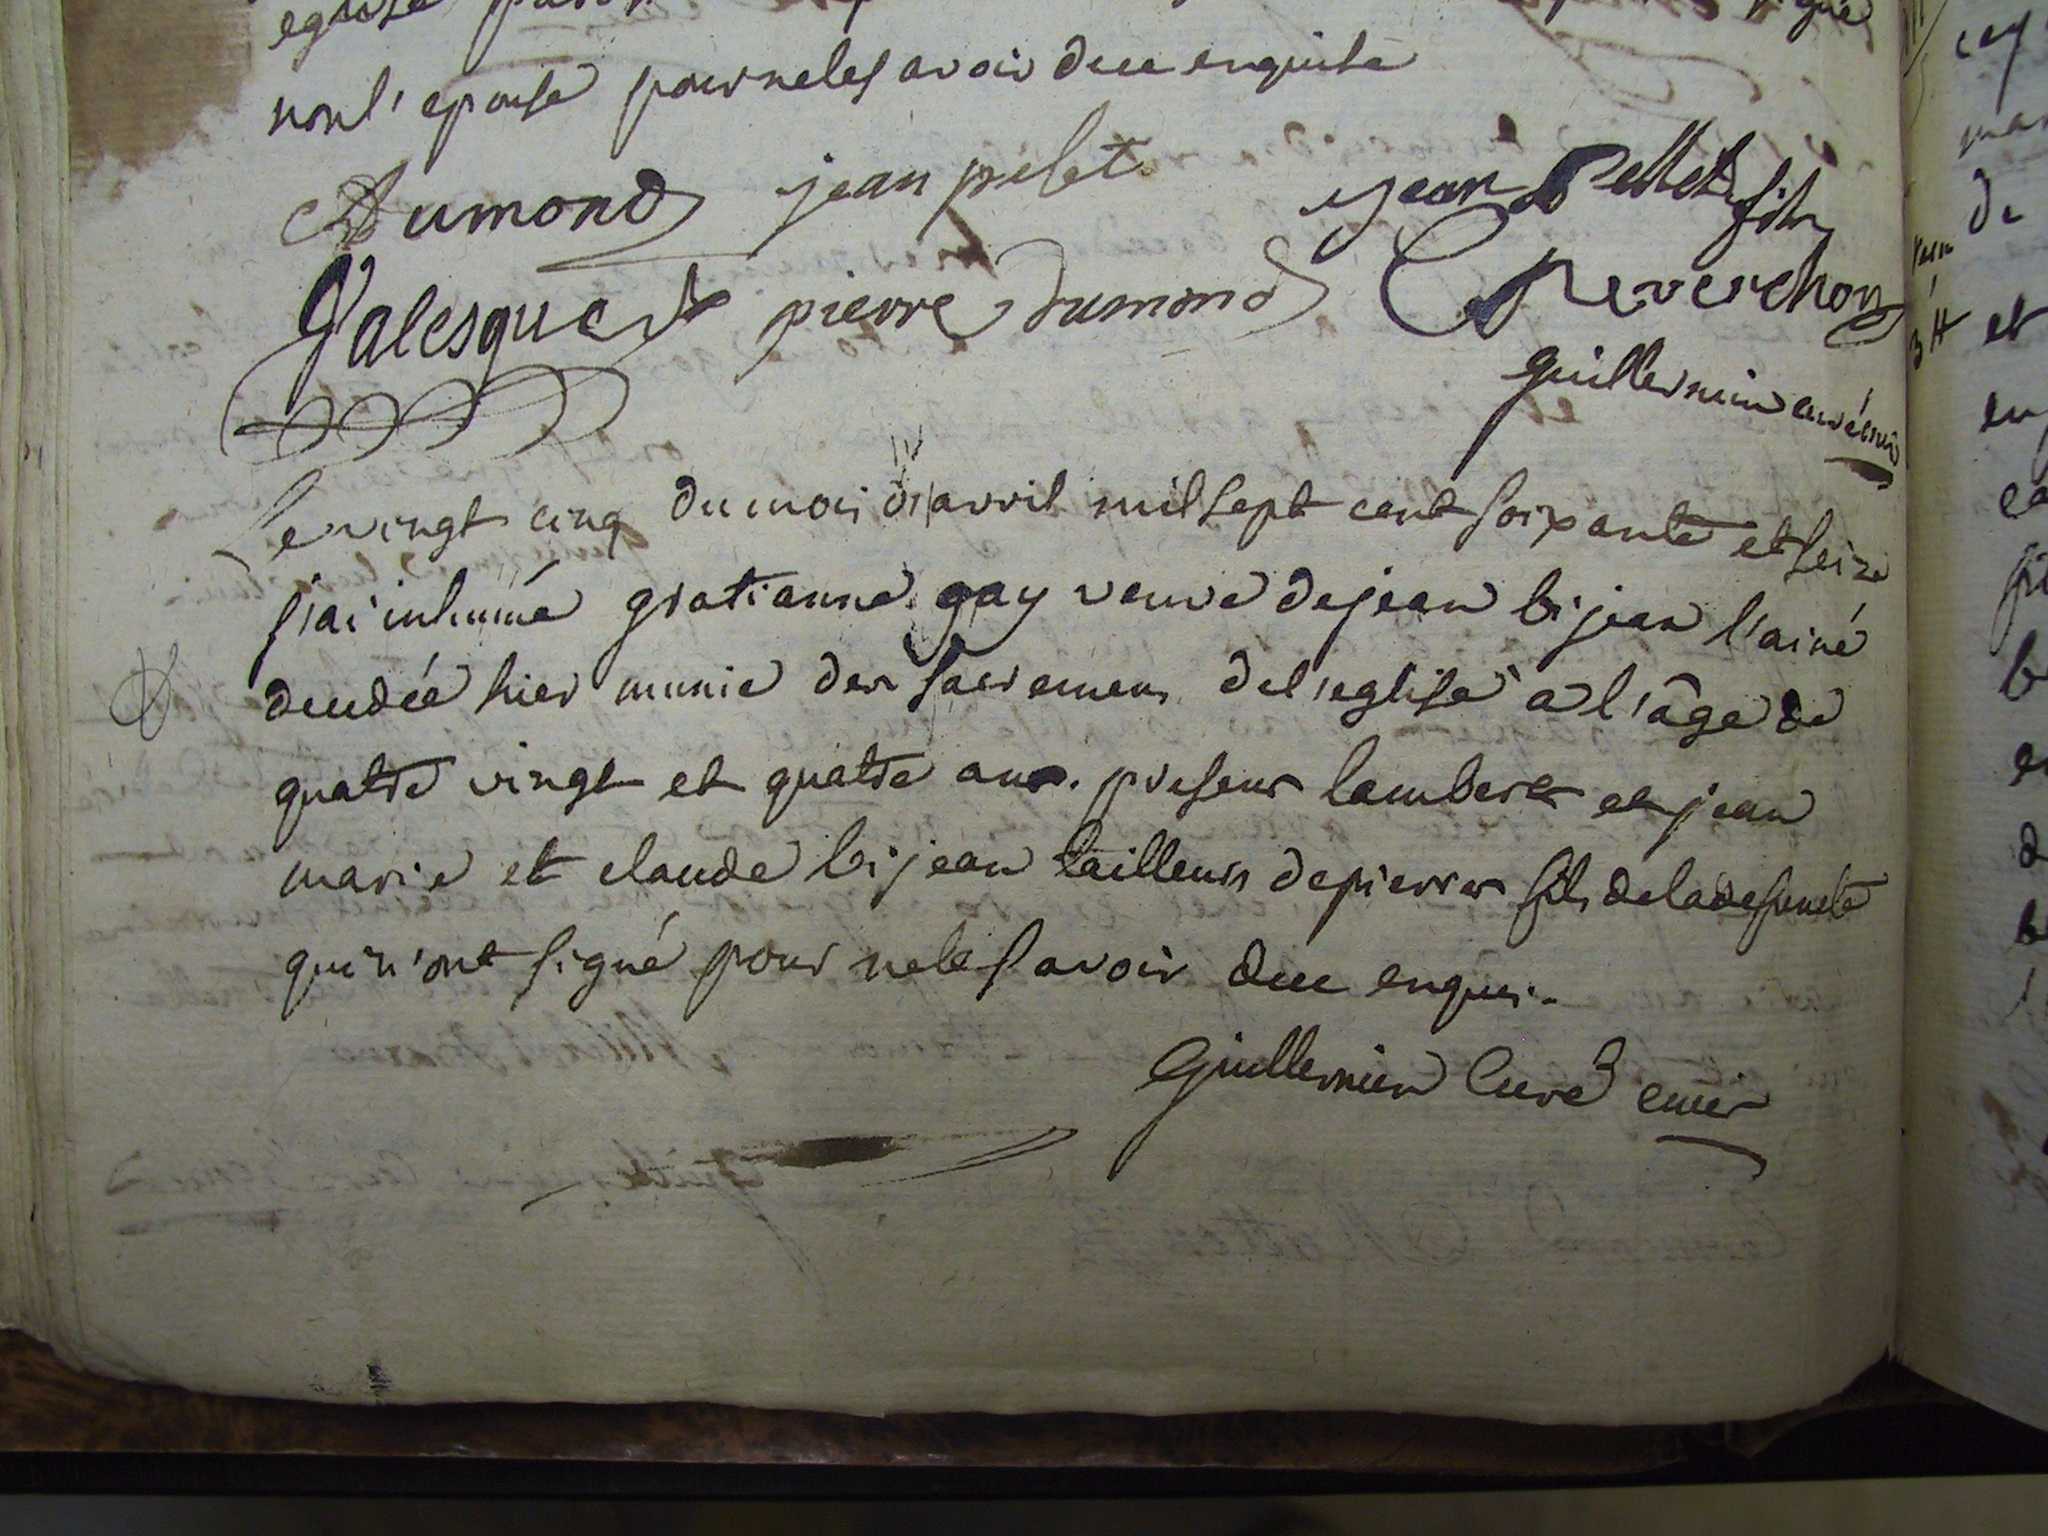 non l'epouse pour ne le savoir due enquise
Dumond jean pelet jean Pellet fils
Valesque pierre dumond Reverchon
guillermin curé
Le vingt cinq du mois d'avril mil sept cent soixante et seize
j'ai inhumé gratianne gay veuve de jean bijean l'ainé
decedée hier munie des sacremens de l'eglise a l'âge de
quatre vingt et quatre ans. presens lambert et jean
marie et claude bijean tailleurs de pierres fils de la defuncte
qui n'ont signé pour ne le savoir due enquis.
Guillermin Curé